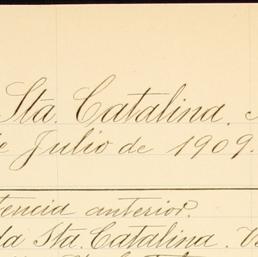 Sta. Catalina.
de Julio de 1909.
tencia anterior.
da Sta. Catalina.